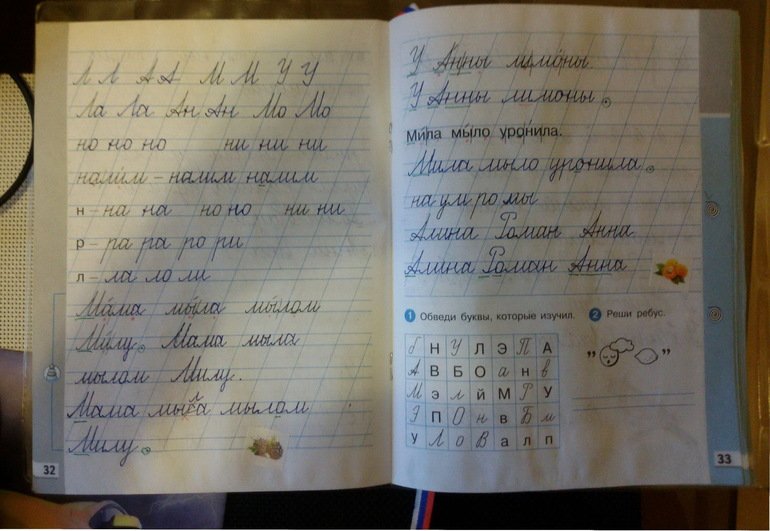 Л Л А А М М У У
Ла Ла Ан Ан Мо Мо
но но но ни ни ни
налим – налим налим
н – на на но но ни ни
р – ра ра ро ри
л – ла ло ли
Ма́ма мы́ла мы́лом
Ми́лу. Мама мыла
мылом Милу.
Мама мыла мылом
Милу.
32
У А́нны лимо́ны.
У Анны лимоны.
Ми́ла мы́ло урони́ла.
Мила мыло уронила.
на ум ро мы
Алина Роман Анна
Алина Роман Анна
1 Обведи буквы, которые изучил.
2 Реши ребус.
б Н У Л Э П А
А В Б О а н в
М э л й М Р У
Э П О н в Б м
У Л о В а л п
„ ”
33